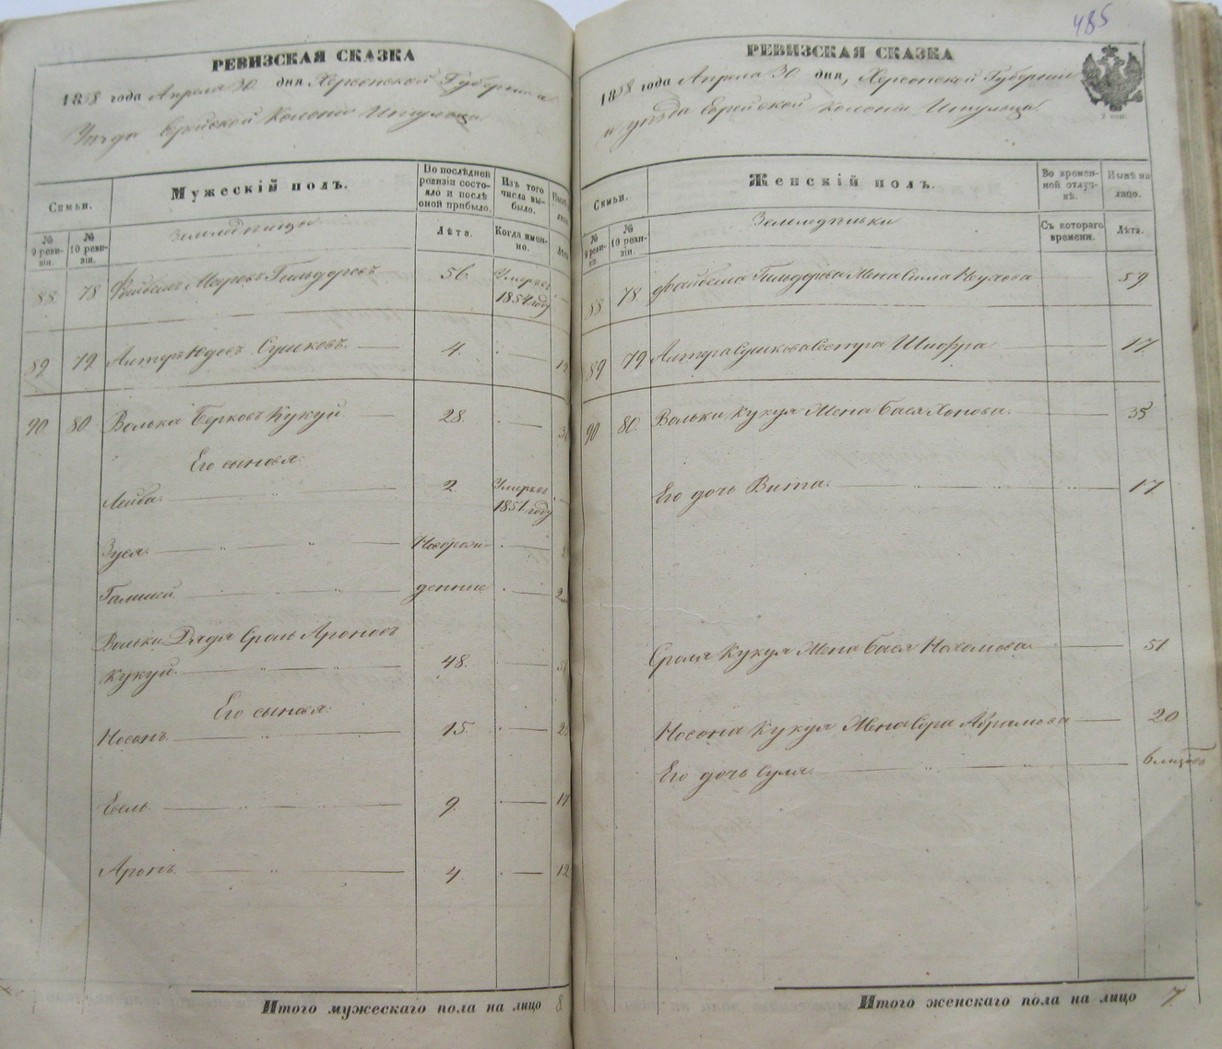 РЕВИЗСКАЯ СКАЗКА
1858 года Апреля 30 дня Херсонской Губернии и
Уезда Еврейской колонии Ингулец
Семьи.
Мужескій полъ.
По последней ревизіи состояло и после оной прибыло.
Изъ того числа выбыло.
№ 9 ревизіи.
№ 10 ревизіи.
Земледельцы
Лѣта.
Когда именно.
88 78 Файбешъ 56 Умеръ 1854 году
89 79 Алтеръ Юдовъ Сушковъ 4
90 80 Волька Берковъ Кукуй 28
Его сыновья:
Лейба 2 Умеръ 1851 году
Зуся Новорож-
денные 2
Вольки Дядя Сроль Ароновъ
Кукуй 48
Его сыновья:
Носонъ 15
9
Аронъ 4 12
Итого мужескаго пола на лицо 8
485
РЕВИЗСКАЯ СКАЗКА
1858 года Апреля 30 дня, Херсонской Губернии
и уезда Еврейской колонии Ингулец
Семьи.
Женскій полъ.
Во временной отлучкѣ.
Нынѣ на лицо.
№ 9 ревизіи.
№ 10 ревизіи.
Земледельки
Съ котораго времени.
Лѣта.
88 78 Файбеша Жена Сима 59
89 79 Алтера Сушкова Сестра Шифра 17
90 80 Вольки Кукуя Жена Бася Хонова 35
Его дочь Вита 17
Сроля Кукуя Жена Бася Нохомова 51
Носона Кукуя Жена Сора Абрамова 20
Его дочь Суля 6 месяцов
Итого женскаго пола на лицо 7